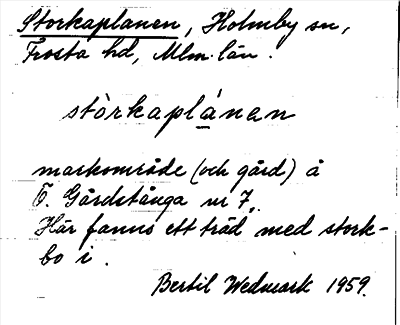 Storkaplanen, Holmby sn,
Frosta hd, Mlm. län.
stòrkaplánan
markområde (och gård) å
Ö. Gårdstånga nr 7.
Här fanns ett träd med stork-
bo i.
Bertil Wedmark 1959.